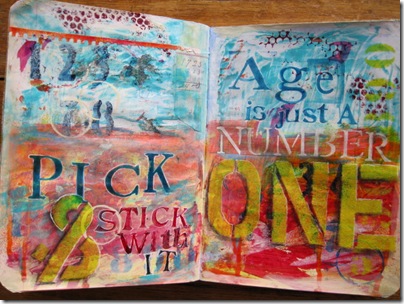 123
8
PICK
& STICK
With
IT
Age
is just A
NUMBER
ONE